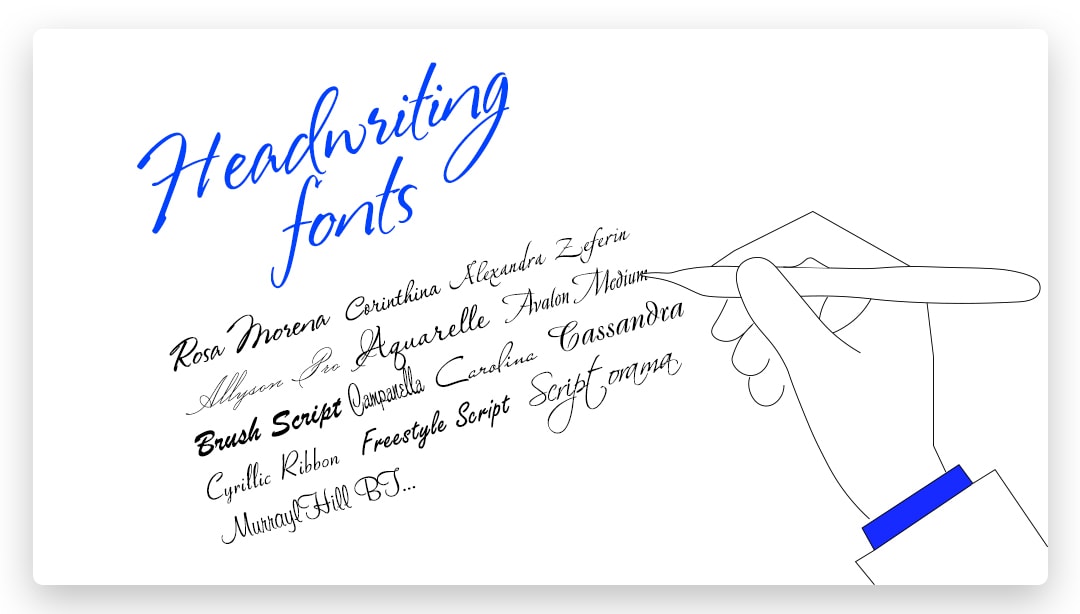 Headwriting
fonts
Rosa Morena Corinthina Alexandra Zeferin
Allyson Pro Aquarelle Avalon Medium
Brush Script Campanella Carolina Cassandra
Cyrillic Ribbon Freestyle Script Script orama
MurraylHill BT...